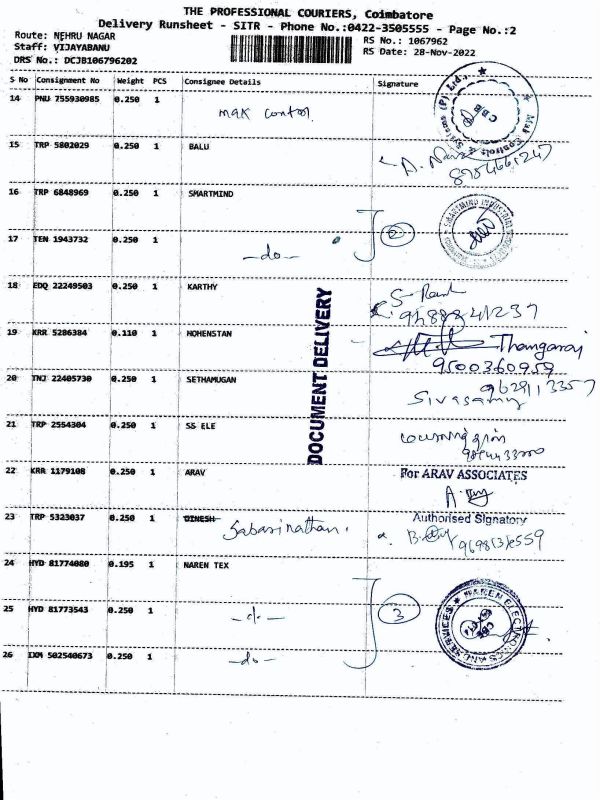 THE PROFESSIONAL COURIERS, Coimbatore
Delivery Runsheet - SITR - Phone No.:0422-3505555 - Page No.:2
Route: NEHRU NAGAR
Staff: VIJAYABANU
DRS No.: DCJB106796202
RS No.: 1067962
RS Date: 28-Nov-2022
S No Consignment No Weight PCS Consignee Details Signature
14 PNU 755930985 0.250 1 Mak control
15 TRP 5802029 0.250 1 BALU
16 TRP 6848969 0.250 1 SMARTMIND
17 TEN 1943732 0.250 1 -do- 2
18 EDQ 22249503 0.250 1 KARTHY
19 KRR 5286384 0.110 1 HOHENSTAN Thangaraj
9500360959
20 TNJ 22405730 0.250 1 SETHAMUGAN 9629113357
Sivasamy
21 TRP 2554304 0.250 1 SS ELE
22 KRR 1179108 0.250 1 ARAV For ARAV ASSOCIATES
Authorised Signatory
23 TRP 5323037 0.250 1 DINESH Sabarinathan.
24 HYD 81774080 0.195 1 NAREN TEX
25 HYD 81773543 0.250 1 -do- 3
26 IXM 502540673 0.250 1 -do-
DOCUMENT DELIVERY
NAREN ELECTRONICS AND SERVICES
CBE